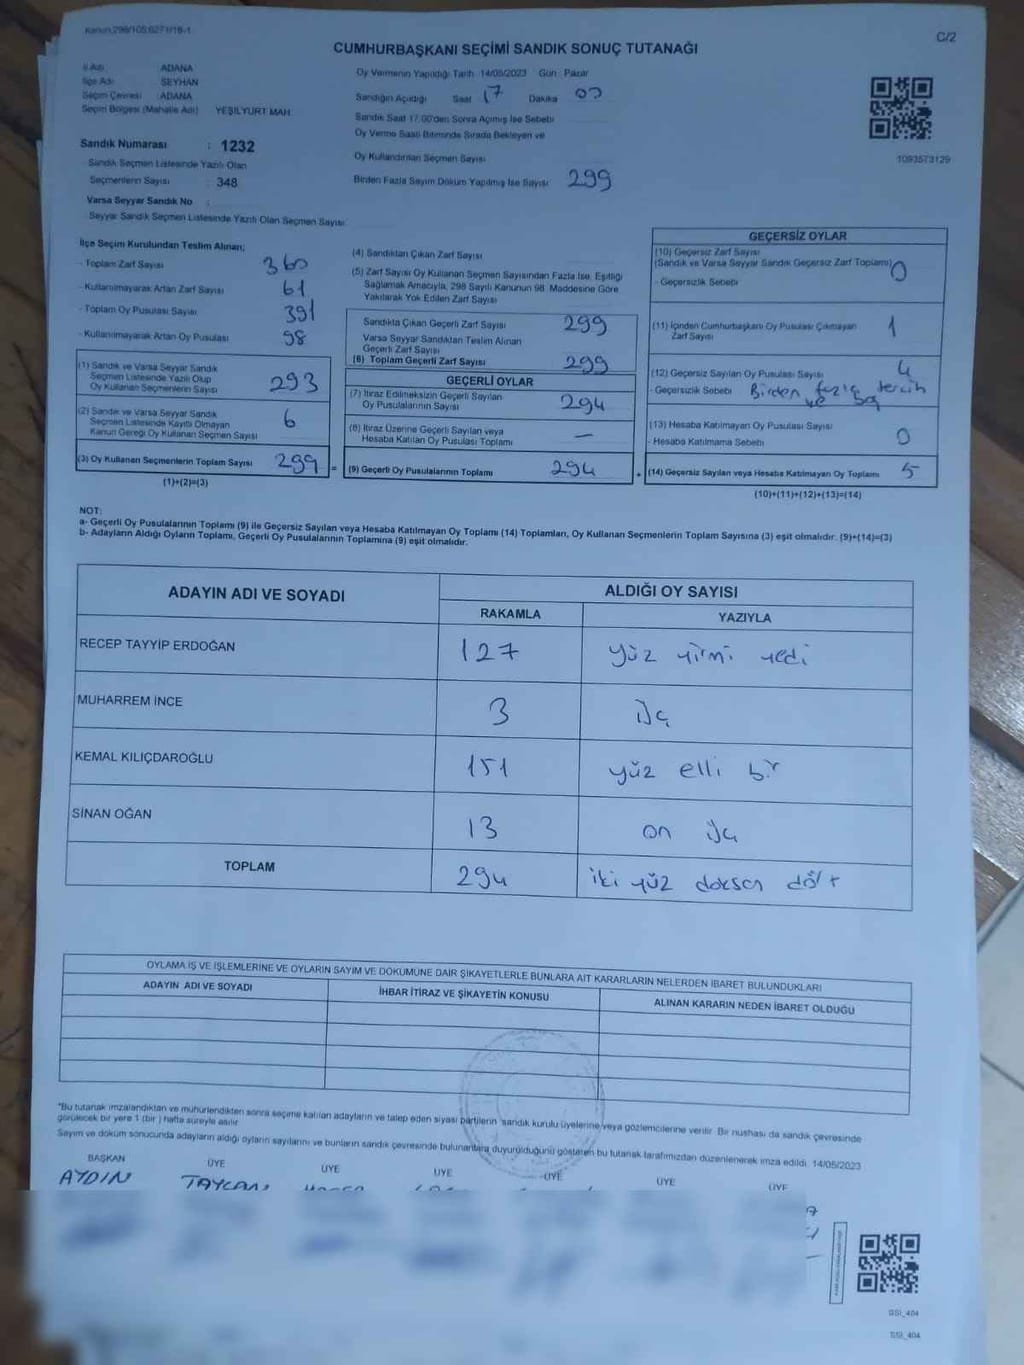 Kanun:298/105;6271/18-1
C/2
CUMHURBAŞKANI SEÇİMİ SANDIK SONUÇ TUTANAĞI
İl Adı : ADANA
İlçe Adı : SEYHAN
Seçim Çevresi : ADANA
Seçim Bölgesi (Mahalle Adı) : YEŞİLYURT MAH.
Sandık Numarası : 1232
Sandık Seçmen Listesinde Yazılı Olan
Seçmenlerin Sayısı : 348
Varsa Seyyar Sandık No :
Seyyar Sandık Seçmen Listesinde Yazılı Olan Seçmen Sayısı:
Oy Vermenin Yapıldığı Tarih: 14/05/2023 Gün: Pazar
Sandığın Açıldığı Saat 17 Dakika 00
Sandık Saat 17:00'den Sonra Açılmış İse Sebebi
Oy Verme Saati Bitiminde Sırada Bekleyen ve
Oy Kullandırılan Seçmen Sayısı
Birden Fazla Sayım Döküm Yapılmış İse Sayısı 299
1093573129
İlçe Seçim Kurulundan Teslim Alınan;
- Toplam Zarf Sayısı 360
- Kullanılmayarak Artan Zarf Sayısı 61
- Toplam Oy Pusulası Sayısı 391
- Kullanılmayarak Artan Oy Pusulası 98
(1) Sandık ve Varsa Seyyar Sandık
Seçmen Listesinde Yazılı Olup
Oy Kullanan Seçmenlerin Sayısı 293
(2) Sandık ve Varsa Seyyar Sandık
Seçmen Listesinde Kayıtlı Olmayan
Kanun Gereği Oy Kullanan Seçmen Sayısı 6
(3) Oy Kullanan Seçmenlerin Toplam Sayısı 299 =
(1)+(2)=(3)
(4) Sandıktan Çıkan Zarf Sayısı
(5) Zarf Sayısı Oy Kullanan Seçmen Sayısından Fazla İse, Eşitliği
Sağlamak Amacıyla, 298 Sayılı Kanunun 98. Maddesine Göre
Yakılarak Yok Edilen Zarf Sayısı
Sandıkta Çıkan Geçerli Zarf Sayısı 299
Varsa Seyyar Sandıktan Teslim Alınan
Geçerli Zarf Sayısı
(6) Toplam Geçerli Zarf Sayısı 299
GEÇERLİ OYLAR
(7) İtiraz Edilmeksizin Geçerli Sayılan
Oy Pusulalarının Sayısı 294
(8) İtiraz Üzerine Geçerli Sayılan veya
Hesaba Katılan Oy Pusulası Toplamı —
(9) Geçerli Oy Pusulalarının Toplamı 294 +
GEÇERSİZ OYLAR
(10) Geçersiz Zarf Sayısı
(Sandık ve Varsa Seyyar Sandık Geçersiz Zarf Toplamı) 0
- Geçersizlik Sebebi
(11) İçinden Cumhurbaşkanı Oy Pusulası Çıkmayan
Zarf Sayısı 1
(12) Geçersiz Sayılan Oy Pusulası Sayısı 4
- Geçersizlik Sebebi Birden fazla tercih
ve boş
(13) Hesaba Katılmayan Oy Pusulası Sayısı 0
- Hesaba Katılmama Sebebi
(14) Geçersiz Sayılan veya Hesaba Katılmayan Oy Toplamı 5
(10)+(11)+(12)+(13)=(14)
NOT:
a- Geçerli Oy Pusulalarının Toplamı (9) ile Geçersiz Sayılan veya Hesaba Katılmayan Oy Toplamı (14) Toplamları, Oy Kullanan Seçmenlerin Toplam Sayısına (3) eşit olmalıdır. (9)+(14)=(3)
b- Adayların Aldığı Oyların Toplamı, Geçerli Oy Pusulalarının Toplamına (9) eşit olmalıdır.
ADAYIN ADI VE SOYADI ALDIĞI OY SAYISI
RAKAMLA YAZIYLA
RECEP TAYYİP ERDOĞAN 127 yüz yirmi yedi
MUHARREM İNCE 3 üç
KEMAL KILIÇDAROĞLU 151 yüz elli bir
SİNAN OĞAN 13 on üç
TOPLAM 294 iki yüz doksan dört
OYLAMA İŞ VE İŞLEMLERİNE VE OYLARIN SAYIM VE DÖKÜMÜNE DAİR ŞİKAYETLERLE BUNLARA AİT KARARLARIN NELERDEN İBARET BULUNDUKLARI
ADAYIN ADI VE SOYADI İHBAR İTİRAZ VE ŞİKAYETİN KONUSU ALINAN KARARIN NEDEN İBARET OLDUĞU
*Bu tutanak imzalandıktan ve mühürlendikten sonra seçime katılan adayların ve talep eden siyasi partilerin sandık kurulu üyelerine veya gözlemcilerine verilir. Bir nüshası da sandık çevresinde
görülecek bir yere 1 (bir) hafta süreyle asılır.
Sayım ve döküm sonucunda adayların aldığı oyların sayılarını ve bunların sandık çevresinde bulunanlara duyurulduğunu gösteren bu tutanak tarafımızdan düzenlenerek imza edildi. 14/05/2023
BAŞKAN ÜYE ÜYE ÜYE ÜYE ÜYE ÜYE
AYDIN TAYLAN
SSİ_404
SSİ_404